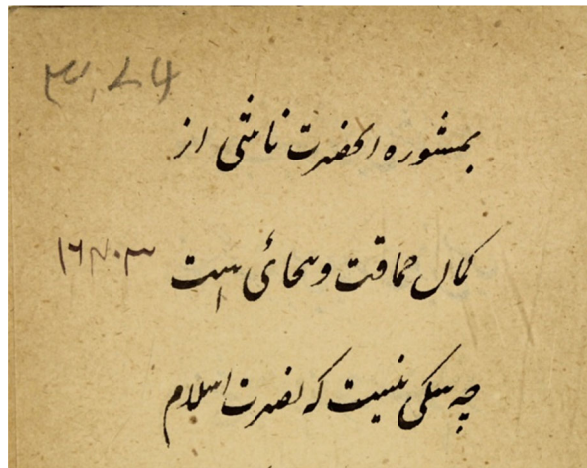 بمشوره الحضرت ناشی از
کمال حماقت و بیحائی است
چه شکی نیست که نصرت اسلام